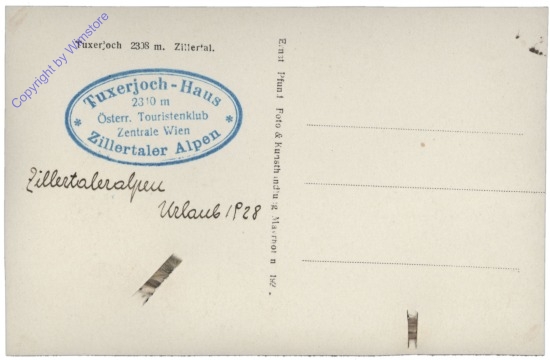 Copyright by Winstore
Tuxerjoch 2308 m. Zillertal.
* Tuxerjoch-Haus *
2310 m
Österr. Touristenklub
Zentrale Wien
Zillertaler Alpen
Zillertaleralpen
Urlaub 1928
Foto & Kunsthandlung